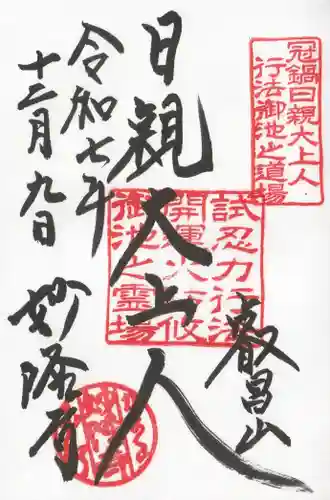 冠鍋日親大上人
行法御池之道場
日親大上人
叡昌山
試忍力行法
御池之霊場
令和七年
十二月九日
妙隆寺